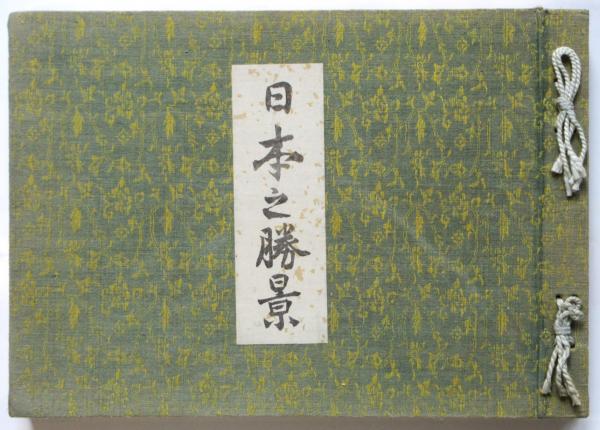 日本之勝景